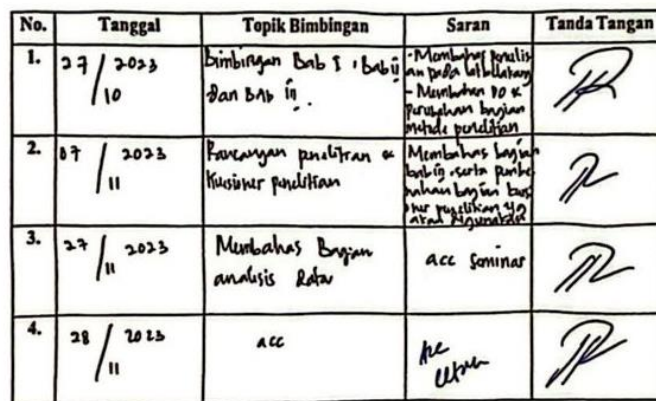 No. Tanggal Topik Bimbingan Saran Tanda Tangan
1. 27/10 2023 Bimbingan Bab I, Bab ii dan Bab iii.
- Membahas penulis
an pada
- Membahas DO &
perubahan bagian
metode penelitian
2. 07/11 2023 Rancangan penelitian &
Kuesioner penelitian
Membahas bagian
bab iii, serta
bagian
penelitian yg
akan digunakan
3. 27/11 2023 Membahas Bagian
analisis Data
acc Seminar
4. 28/11 2023 acc
Acc